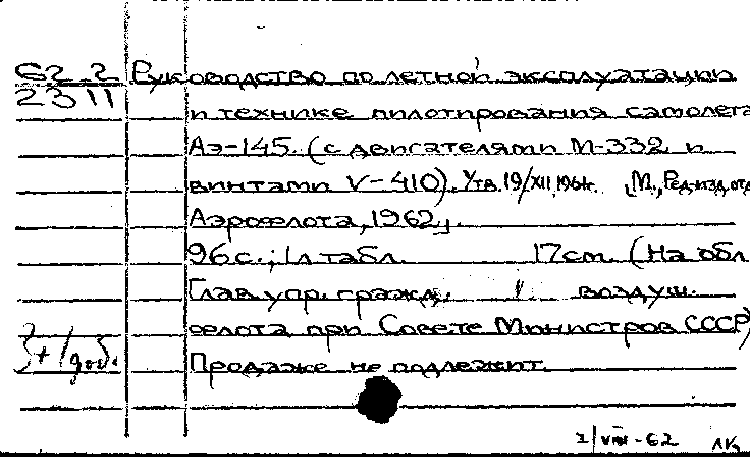 62-2 Руководство по летной эксплуатации
2311 и технике пилотирования самолета
Аэ-145. (с двигателями М-332 и
винтами V-410). Утв. 19/XII 1961г. [М., Ред-изд. отд.
Аэрофлота, 1962].
96с.; 1л табл. 17см. (На обл.
Глав. упр. гражд. воздуш.
флота при Совете Министров СССР)
Продаже не подлежит.
2/VIII-62